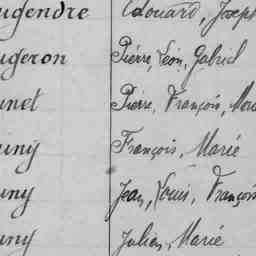 ugendre Édouard, Joseph
ugeron Pierre, Léon, Gabriel
unet Pierre, François, Mou
uny François, Marie
uny Jean, Louis, François
uny Julien, Marie